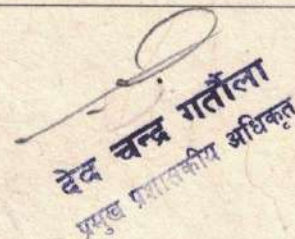 देव चन्द्र गर्तौला
प्रमुख प्रशासकीय अधिकृत